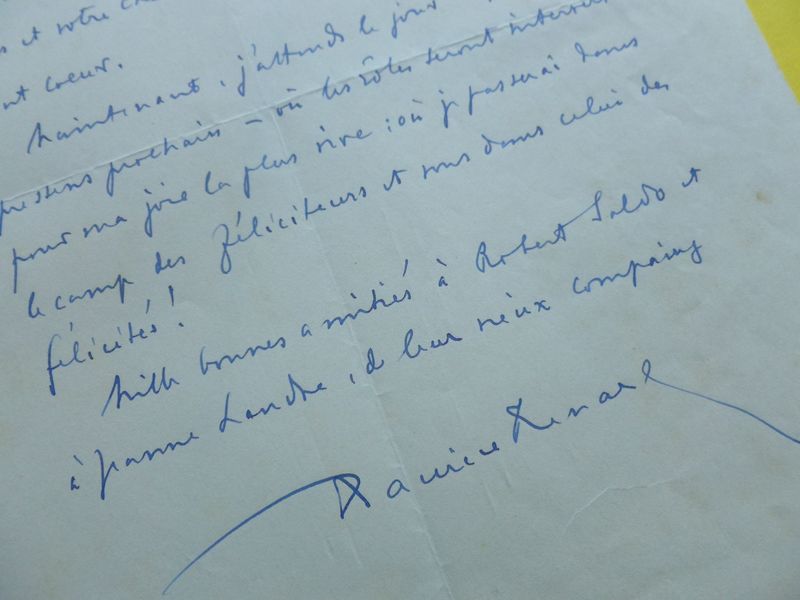 s et votre
nt coeur.
Maintenant, j'attends le jour
pressens prochain – où les rôles seront
pour ma joie la plus vive : où je passerai dans
le camp des féliciteurs et vous dans celui des
félicités !
Mille bonnes amitiés à Robert Saldo et
à Jeanne Landre, de leur vieux compaing
Maurice Renard